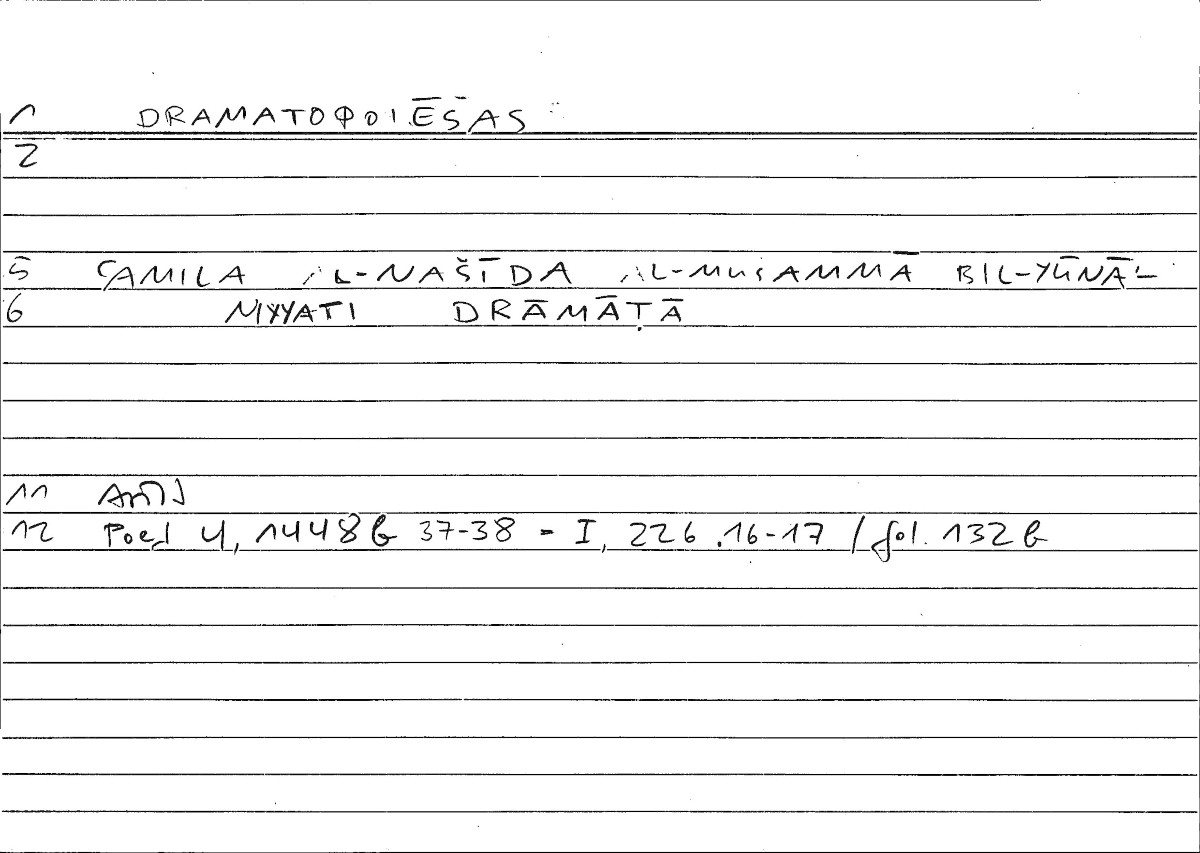 1 DRAMATOΦOIĒSAS
2
5 ʿAMILA AL-NAŠĪDA AL-MUSAMMĀ BIL-YŪNĀ-
6 NIYYATI DRĀMĀṬĀ
11
12 Poet 4, 1448b 37-38 = I, 226.16-17 / fol. 132b